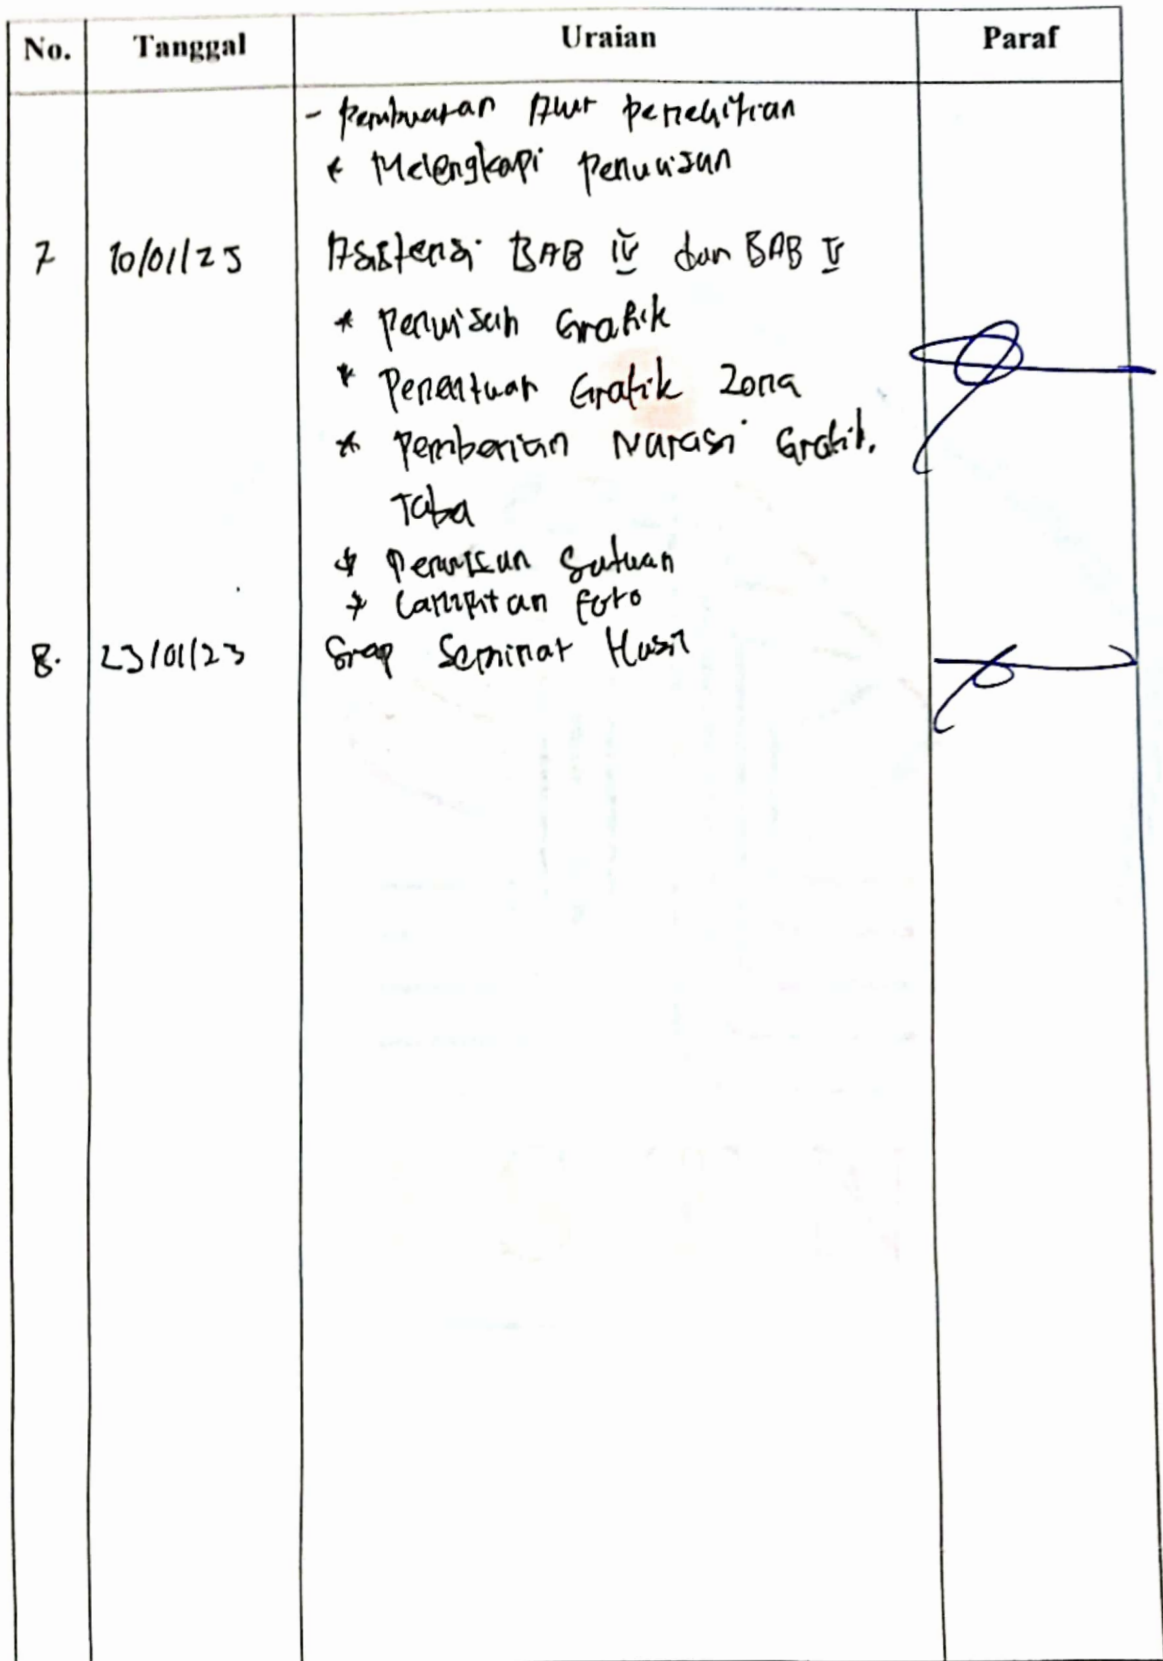 No. Tanggal Uraian Paraf
- Pembuatan Alur penelitian
* Melengkapi penulisan
7 10/01/23 Asistensi BAB IV dan BAB V
* Penulisan Grafik
* Penentuan Grafik Zona
* Pemberian Narasi Grafik,
* Penulisan Satuan
* Lampiran Foto
8. 23/01/23 Siap Seminar Hasil